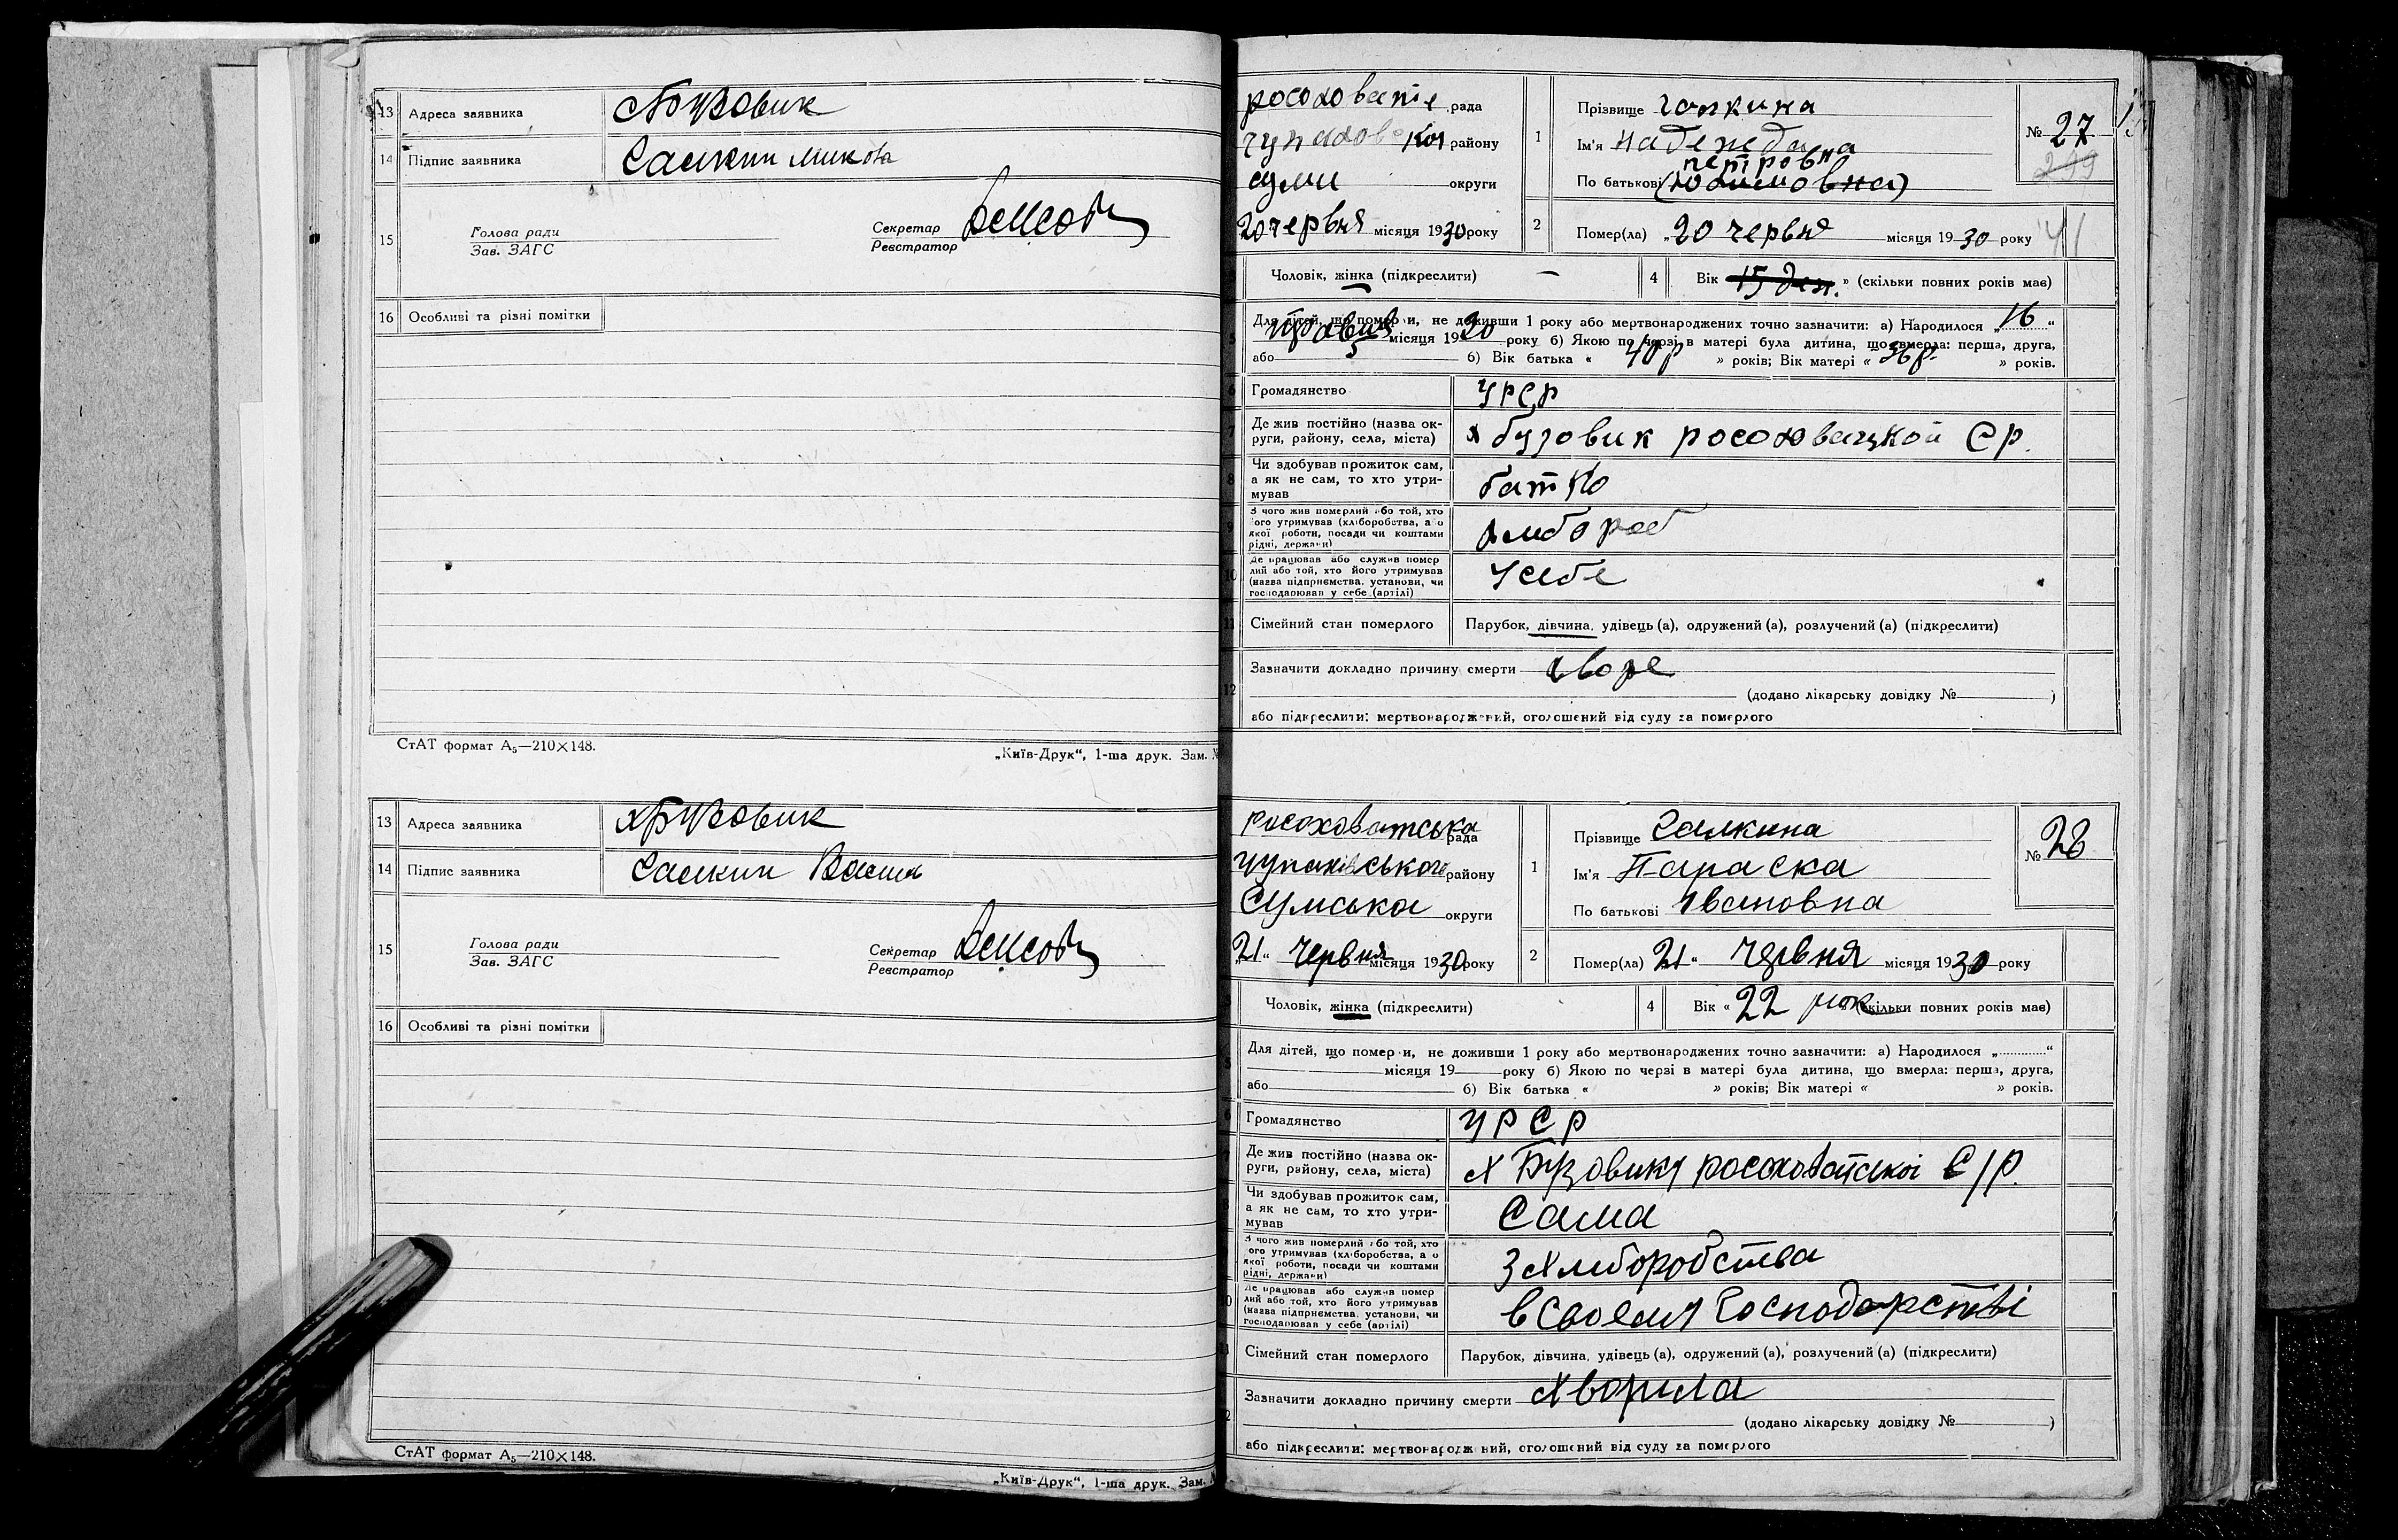 13 Адреса заявника х Бузовик
14 Підпис заявника Салкин Микола
15 Голова ради
Зав. ЗАГС
Секретар
Реєстратор
16 Особливі та різні помітки
СтАТ формат А₅—210×148.
„Київ-Друк“, 1-ша друк. Зам. №
13 Адреса заявника х Бузовик
14 Підпис заявника Салкин
15 Голова ради
Зав. ЗАГС
Секретар
Реєстратор
16 Особливі та різні помітки
СтАТ формат А₅—210×148.
„Київ-Друк“, 1-ша друк. Зам.
рада
району
суми округи
20 червня місяця 1930 року
1 Прізвище
Ім'я
петровна
По батькові
№ 27
299
2 Помер(ла) „20 червня місяця 1930 року
41
Чоловік, жінка (підкреслити)
4 Вік 15 ден. » (скільки повних років має)
5 Для дітей, що померли, не доживши 1 року або мертвонароджених точно зазначити: а) Народилося „16“
травня місяця 1930 року б) Якою по черзі в матері була дитина, що вмерла: перша, друга,
або 5 б) Вік батька « 40 р » років; Вік матері « 36 р. » років.
6 Громадянство УРСР
7 Де жив постійно (назва ок-
руги, району, села, міста) х бузовик росоховацкой С р.
8 Чи здобував прожиток сам,
а як не сам, то хто утри-
мував батко
9 З чого жив померлий або той, хто
його утримував (хліборобства, або
якої роботи, посади чи коштами
рідні, держави) хлібороб
10 Де працював або служив помер
лий або той, хто його утримував
(назва підприємства, установи, чи
господарював у себе (артілі) У себе
11 Сімейний стан померлого Парубок, дівчина, удівець (а), одружений (а), розлучений (а) (підкреслити)
12 Зазначити докладно причину смерти хворе
(додано лікарську довідку № )
або підкреслити: мертвонароджений, оголошений від суду за померлого
Росоховатська рада
чупахівського району
Сумська округи
„21“ Червня місяця 1930 року
1 Прізвище Салкина
Ім'я Параска
По батькові Івановна
№ 28
2 Помер(ла) „21“ Червня місяця 1930 року
Чоловік, жінка (підкреслити)
4 Вік « 22 рок » (скільки повних років має)
Для дітей, що померли, не доживши 1 року або мертвонароджених точно зазначити: а) Народилося „ “
місяця 19 року б) Якою по черзі в матері була дитина, що вмерла: перша, друга,
або б) Вік батька « » років; Вік матері « » років.
Громадянство УРСР
Де жив постійно (назва ок-
руги, району, села, міста) х Бузовику росоховатської С/Р.
Чи здобував прожиток сам,
а як не сам, то хто утри-
мував Сама
З чого жив померлий або той, хто
його утримував (хліборобства, або
якої роботи, посади чи коштами
рідні, держави) З Хліборобства
Де працював або служив помер
лий або той, хто його утримував
(назва підприємства, установи, чи
господарював у себе (артілі) в Своєму Господарстві
Сімейний стан померлого Парубок, дівчина, удівець (а), одружений (а), розлучений (а) (підкреслити)
Зазначити докладно причину смерти Хворила
(додано лікарську довідку № )
або підкреслити: мертвонароджений, оголошений від суду за померлого